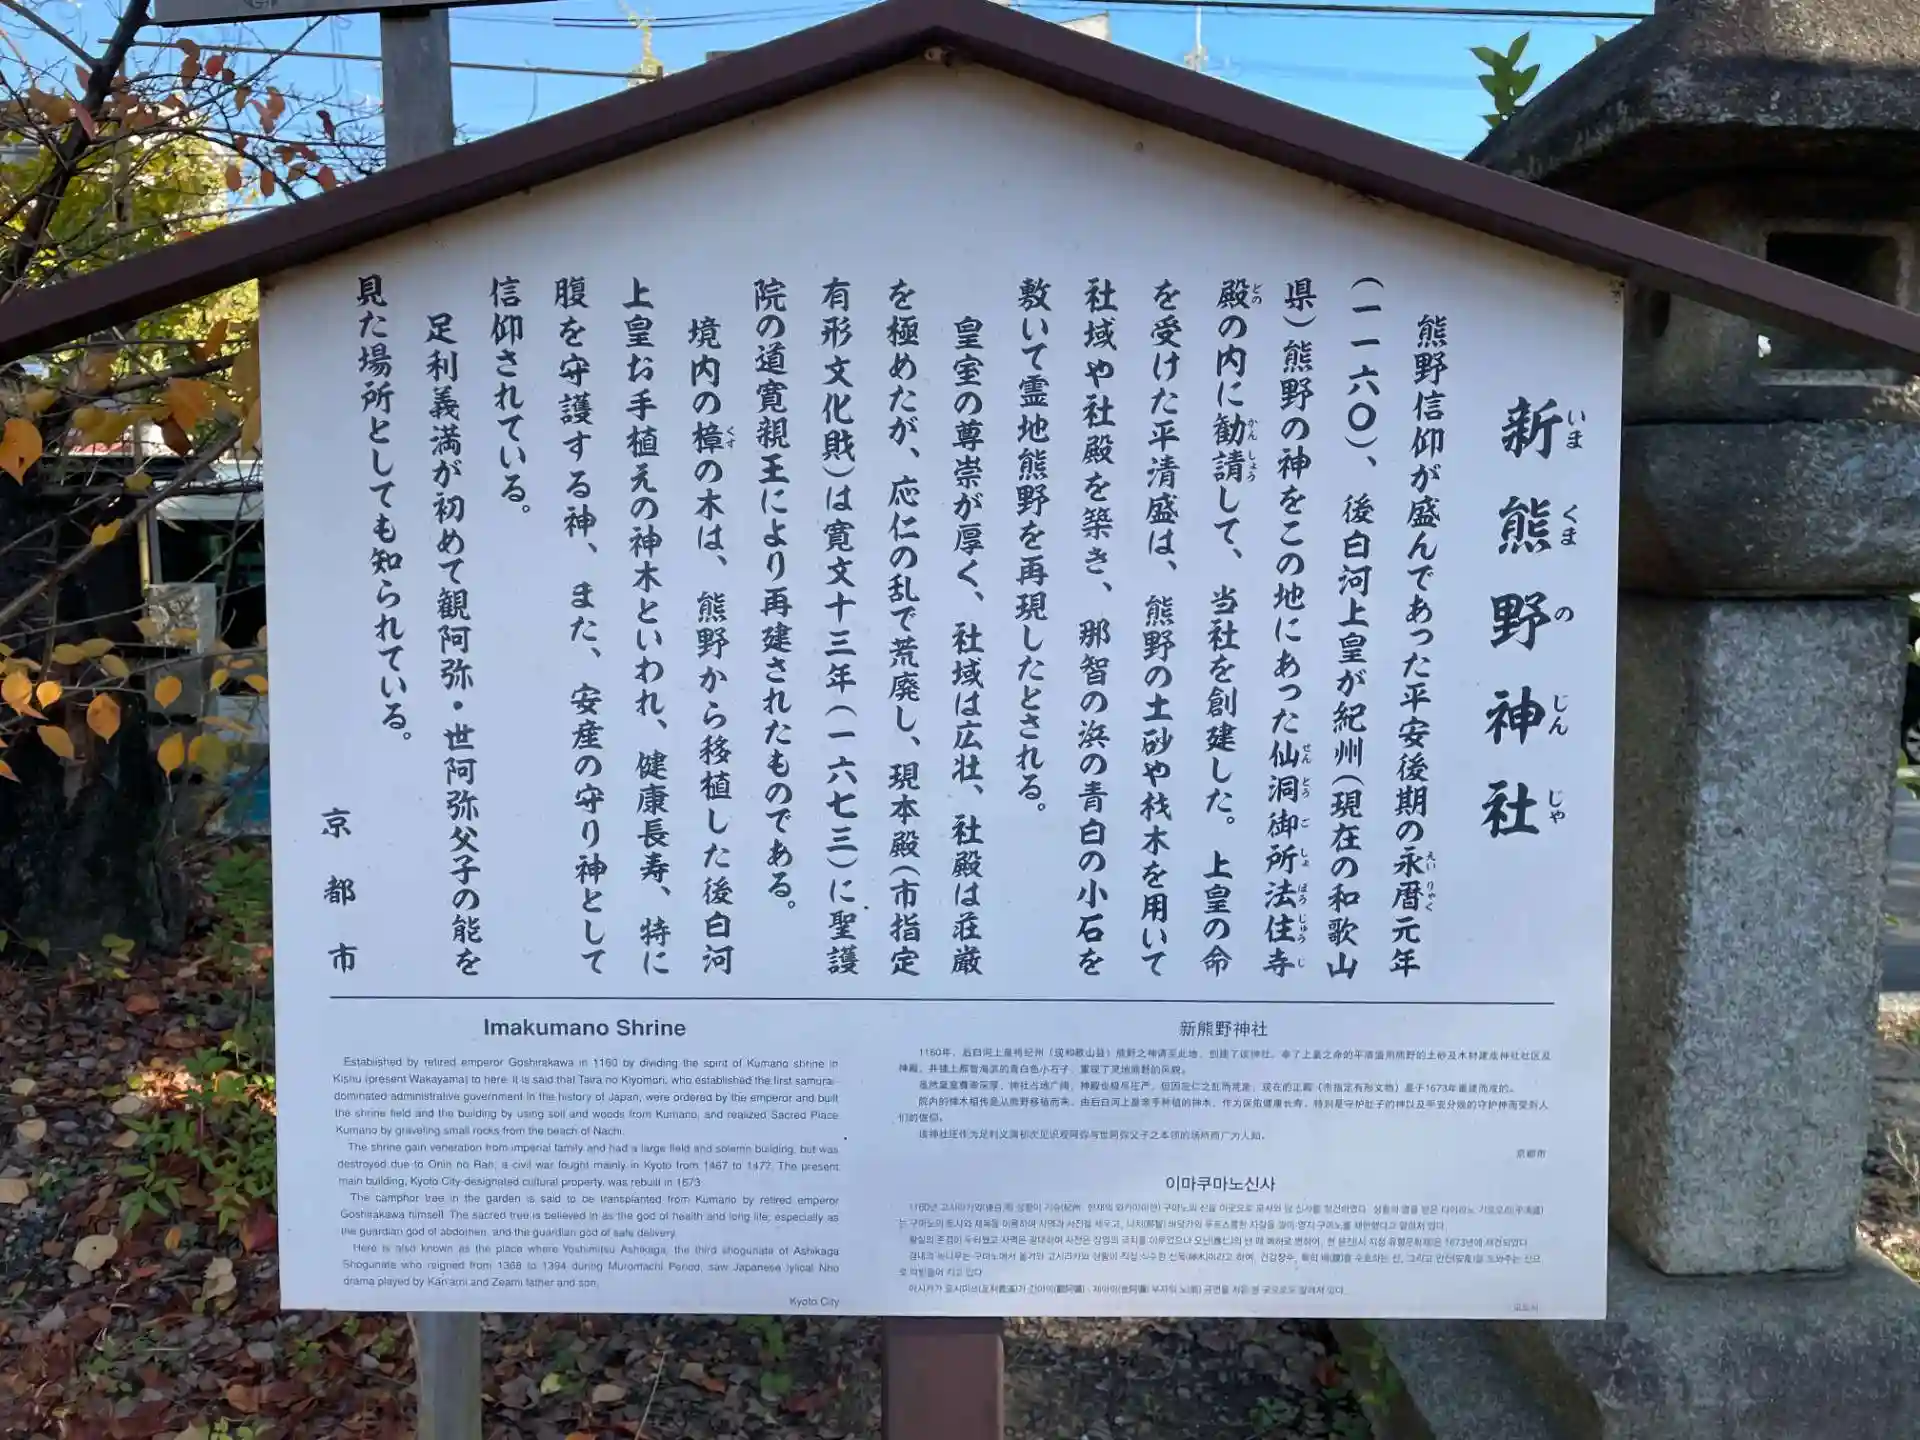 新熊野神社
いま くま の じん じゃ
熊野信仰が盛んであった平安後期の永暦元年
えいりゃく
(一一六〇)、後白河上皇が紀州(現在の和歌山
県)熊野の神をこの地にあった仙洞御所法住寺
せんとうごしょほうじゅうじ
殿の内に勧請して、当社を創建した。上皇の命
どの かんしょう
を受けた平清盛は、熊野の土砂や材木を用いて
社域や社殿を築き、那智の浜の青白の小石を
敷いて霊地熊野を再現したとされる。
皇室の尊崇が厚く、社域は広壮、社殿は荘厳
を極めたが、応仁の乱で荒廃し、現本殿(市指定
有形文化財)は寛文十三年(一六七三)に聖護
院の道寛親王により再建されたものである。
境内の樟の木は、熊野から移植した後白河
くす
上皇お手植えの神木といわれ、健康長寿、特に
腹を守護する神、また、安産の守り神として
信仰されている。
足利義満が初めて観阿弥・世阿弥父子の能を
見た場所としても知られている。
京都市
Imakumano Shrine
Established by retired emperor Goshirakawa in 1160 by dividing the spirit of Kumano shrine in
Kishu (present Wakayama) to here. It is said that Taira no Kiyomori, who established the first samurai-
dominated administrative government in the history of Japan, were ordered by the emperor and built
the shrine field and the building by using soil and woods from Kumano, and realized Sacred Place
Kumano by graveling small rocks from the beach of Nachi.
The shrine gain veneration from imperial family and had a large field and solemn building, but was
destroyed due to Onin no Ran; a civil war fought mainly in Kyoto from 1467 to 1477. The present
main building, Kyoto City-designated cultural property, was rebuilt in 1673.
The camphor tree in the garden is said to be transplanted from Kumano by retired emperor
Goshirakawa himself. The sacred tree is believed in as the god of health and long life, especially as
the guardian god of abdomen, and the guardian god of safe delivery.
Here is also known as the place where Yoshimitsu Ashikaga, the third shogunate of Ashikaga
Shogunate who reigned from 1368 to 1394 during Muromachi Period, saw Japanese lylical Nho
drama played by Kan'ami and Zeami father and son.
Kyoto City
新熊野神社
1160年，后白河上皇将纪州（现和歌山县）熊野之神请至此地，创建了该神社。奉了上皇之命的平清盛用熊野的土砂及木材建成神社社区及
神殿，并铺上那智海滨的青白色小石子，重现了灵地熊野的风貌。
虽然皇室尊崇深厚，神社占地广阔，神殿也极尽庄严，但因应仁之乱而荒废，现在的正殿（市指定有形文物）是于1673年重建而成的。
院内的樟木相传是从熊野移植而来，由后白河上皇亲手种植的神木，作为保佑健康长寿、特别是守护肚子的神以及平安分娩的守护神而受到人
们的信仰。
该神社还作为足利义满初次见识观阿弥与世阿弥父子之本领的场所而广为人知。
京都市
이마쿠마노신사